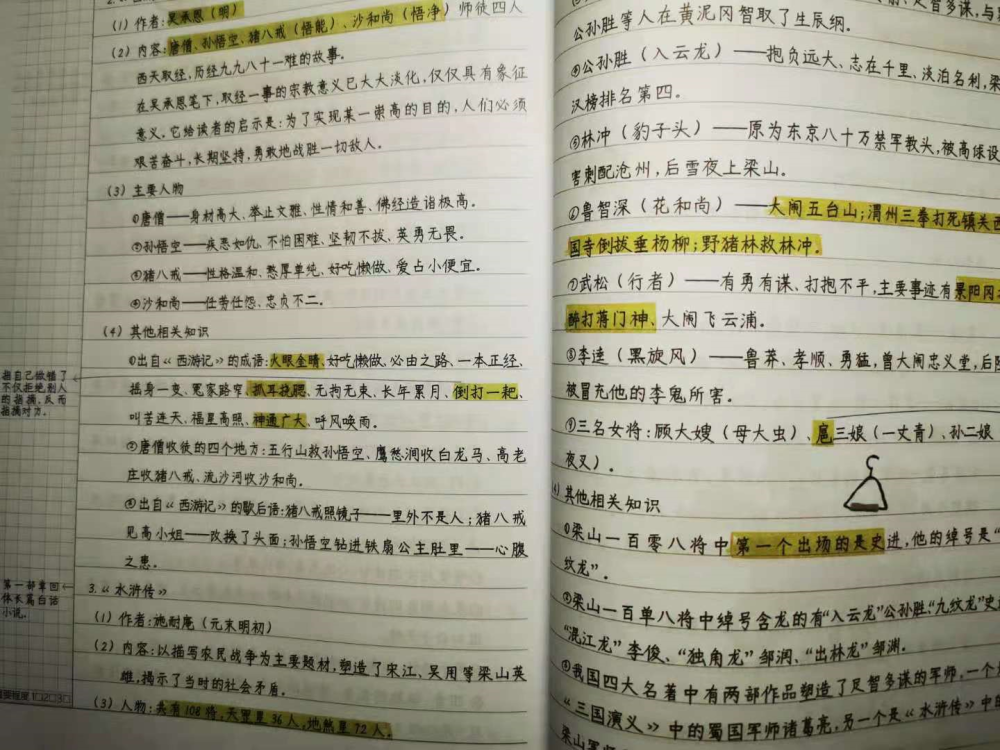 (1) 作者:吴承恩(明)
(2) 内容:唐僧、孙悟空、猪八戒(悟能)、沙和尚(悟净)师徒四人
西天取经,历经九九八十一难的故事。
在吴承恩笔下,取经一事的宗教意义已大大淡化,仅仅具有象征
意义,它给读者的启示是:为了实现某一崇高的目的,人们必须
艰苦奋斗,长期坚持,勇敢地战胜一切敌人。
(3) 主要人物
①唐僧——身材高大、举止文雅、性情和善、佛经造诣极高。
②孙悟空——疾恶如仇、不怕困难、坚韧不拔、英勇无畏。
③猪八戒——性格温和、憨厚单纯、好吃懒做、爱占小便宜。
④沙和尚——任劳任怨、忠贞不二。
(4) 其他相关知识
①出自《西游记》的成语:火眼金睛、好吃懒做、必由之路、一本正经、
摇身一变、冤家路窄、抓耳挠腮、无拘无束、长年累月、倒打一耙、
叫苦连天、福星高照、神通广大、呼风唤雨。
②唐僧收徒的四个地方:五行山救孙悟空、鹰愁涧收白龙马、高老
庄收猪八戒、流沙河收沙和尚。
③出自《西游记》的歇后语:猪八戒照镜子——里外不是人;猪八戒
见高小姐——改换了头面;孙悟空钻进铁扇公主肚里——心腹
之患。
3.《水浒传》
(1) 作者:施耐庵(元末明初)
(2) 内容:以描写农民战争为主要题材,塑造了宋江、吴用等梁山英
雄,揭示了当时的社会矛盾。
(3) 人物:共有108将,天罡星36人,地煞星72人。
指自己做错了
不仅拒绝别人
的指摘,反而
指摘对方。
第一部章回
体长篇白话
小说。
公孙胜等人在黄泥冈智取了生辰纲。
④公孙胜(入云龙)——抱负远大、志在千里、淡泊名利,梁
汉榜排名第四。
⑤林冲(豹子头)——原为东京八十万禁军教头,被高俅设
害刺配沧州,后雪夜上梁山。
⑥鲁智深(花和尚)——大闹五台山;渭州三拳打死镇关西
国寺倒拔垂杨柳;野猪林救林冲。
⑦武松(行者)——有勇有谋、打抱不平,主要事迹有景阳冈
醉打蒋门神、大闹飞云浦。
⑧李逵(黑旋风)——鲁莽、孝顺、勇猛,曾大闹忠义堂,后
被冒充他的李鬼所害。
⑨三名女将:顾大嫂(母大虫)、扈三娘(一丈青)、孙二娘
夜叉)。
其他相关知识
①梁山一百零八将中第一个出场的是史进,他的绰号是“
纹龙”。
②梁山一百单八将中绰号含龙的有“入云龙”公孙胜、“九纹龙”史
“混江龙”李俊、“独角龙”邹润、“出林龙”邹渊。
③我国四大名著中有两部作品塑造了足智多谋的军师,一个
《三国演义》中的蜀国军师诸葛亮,另一个是《水浒传》中的
梁山军师